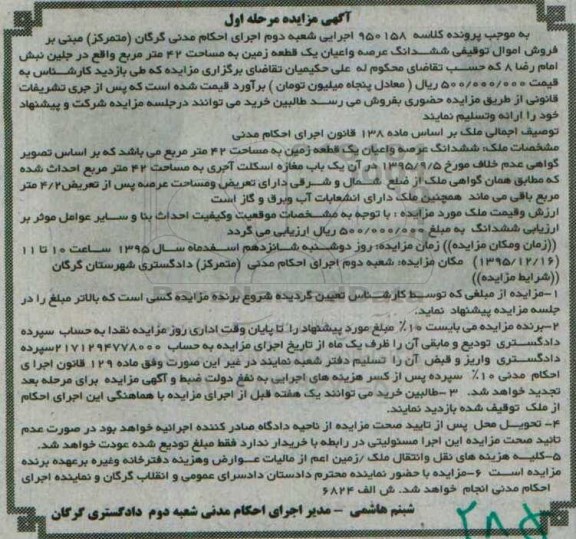 آگهی مزایده مرحله اول
به موجب پرونده کلاسه ۹۵۰۱۵۸ اجرایی شعبه دوم اجرای احکام مدنی گرگان (متمرکز) مبنی بر
فروش اموال توقیفی ششدانگ عرصه واعیان یک قطعه زمین به مساحت ۴۲ متر مربع واقع در جلین نبش
امام رضا ۸ که حسب تقاضای محکوم له علی حکیمیان تقاضای برگزاری مزایده که طی بازدید کارشناس به
قیمت ۵۰۰/۰۰۰/۰۰۰ ریال ( معادل پنجاه میلیون تومان ) برآورد قیمت شده است که پس از جری تشریفات
قانونی از طریق مزایده حضوری بفروش می رسد طالبین خرید می توانند درجلسه مزایده شرکت و پیشنهاد
خود را ارائه وتسلیم نمایند
توصیف اجمالی ملک بر اساس ماده ۱۳۸ قانون اجرای احکام مدنی
مشخصات ملک: ششدانگ عرصه واعیان یک قطعه زمین به مساحت ۴۲ متر مربع می باشد که بر اساس تصویر
گواهی عدم خلاف مورخ ۱۳۹۵/۹/۵ در آن یک باب مغازه اسکلت آجری به مساحت ۴۲ متر مربع احداث شده
که مطابق همان گواهی ملک از ضلع شمال و شرقی دارای تعریض ومساحت عرصه پس از تعریض ۴/۲ متر
مربع باقی می ماند همچنین ملک دارای انشعابات آب وبرق و گاز است
ارزش وقیمت ملک مورد مزایده : با توجه به مشخصات موقعیت وکیفیت احداث بنا و سایر عوامل موثر بر
ارزیابی ششدانگ به مبلغ ۵۰۰/۰۰۰/۰۰۰ ریال ارزیابی می گردد
((زمان ومکان مزایده)) زمان مزایده: روز دوشنبه شانزدهم اسفدماه سال ۱۳۹۵ ساعت ۱۰ تا ۱۱
(۱۳۹۵/۱۲/۱۶) مکان مزایده: شعبه دوم اجرای احکام مدنی (متمرکز) دادگستری شهرستان گرگان
((شرایط مزایده))
۱-مزایده از مبلغی که توسط کارشناس تعیین گردیده شروع برنده مزایده کسی است که بالاتر مبلغ را در
جلسه مزایده پیشنهاد نماید.
۲-برنده مزایده می بایست ۱۰٪ مبلغ مورد پیشنهاد را تا پایان وقت اداری روز مزایده نقدا به حساب سپرده
دادگستری تودیع و مابقی آن را ظرف یک ماه از تاریخ اجرای مزایده به حساب ۲۱۷۱۲۹۴۷۷۸۰۰۰سپرده
دادگستری واریز و قبض آن را تسلیم دفتر شعبه نمایند در غیر این صورت وفق ماده ۱۲۹ قانون اجرا ی
احکام مدنی ۱۰٪ سپرده پس از کسر هزینه های اجرایی به نفغ دولت ضبط و آگهی مزایده برای مرحله بعد
تجدید خواهد شد. ۳-طالبین خرید می توانند یک هفته قبل از اجرای مزایده با هماهنگی این اجرای احکام
از ملک توقیف شده بازدید نمایند.
۴- تحویل محل پس از تایید صحت مزایده از ناحیه دادگاه صادر کننده اجرائیه خواهد بود در صورت عدم
تائید صحت مزایده این اجرا مسئولیتی در رابطه با خریدار ندارد فقط مبلغ تودیع شده عودت خواهد شد.
۵-کلیه هزینه های نقل وانتقال ملک /زمین اعم از مالیات عوارض وهزینه دفترخانه وغیره برعهده برنده
مزایده است ۶-مزایده با حضور نماینده محترم دادستان دادسرای عمومی و انقلاب گرگان و نماینده اجرای
احکام مدنی انجام خواهد شد. ش الف ۶۸۲۴
شبنم هاشمی - مدیر اجرای احکام مدنی شعبه دوم دادگستری گرگان